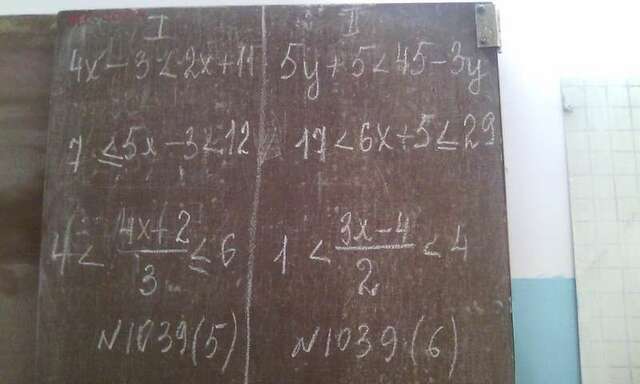 I
4x - 3 < 2x + 11
7 ≤ 5x - 3 < 12
4 < (4x + 2)/3 ≤ 6
N1039(5)
II
5y + 5 < 45 - 3y
17 < 6x + 5 ≤ 29
1 < (3x - 4)/2 < 4
N1039 (6)